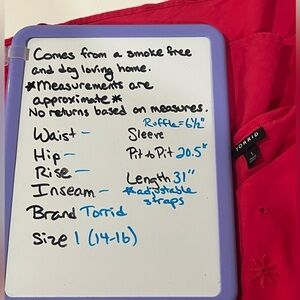 Comes from a smoke free
and dog loving home.
*Measurements are
approximate*
No returns based on measures.
Ruffle=6½"
Waist- Sleeve
Hip- Pit to Pit 20.5"
Rise-
Length 31"
Inseam- *adjustable
straps
Brand Torrid
Size 1 (14-16)
TORRID
1